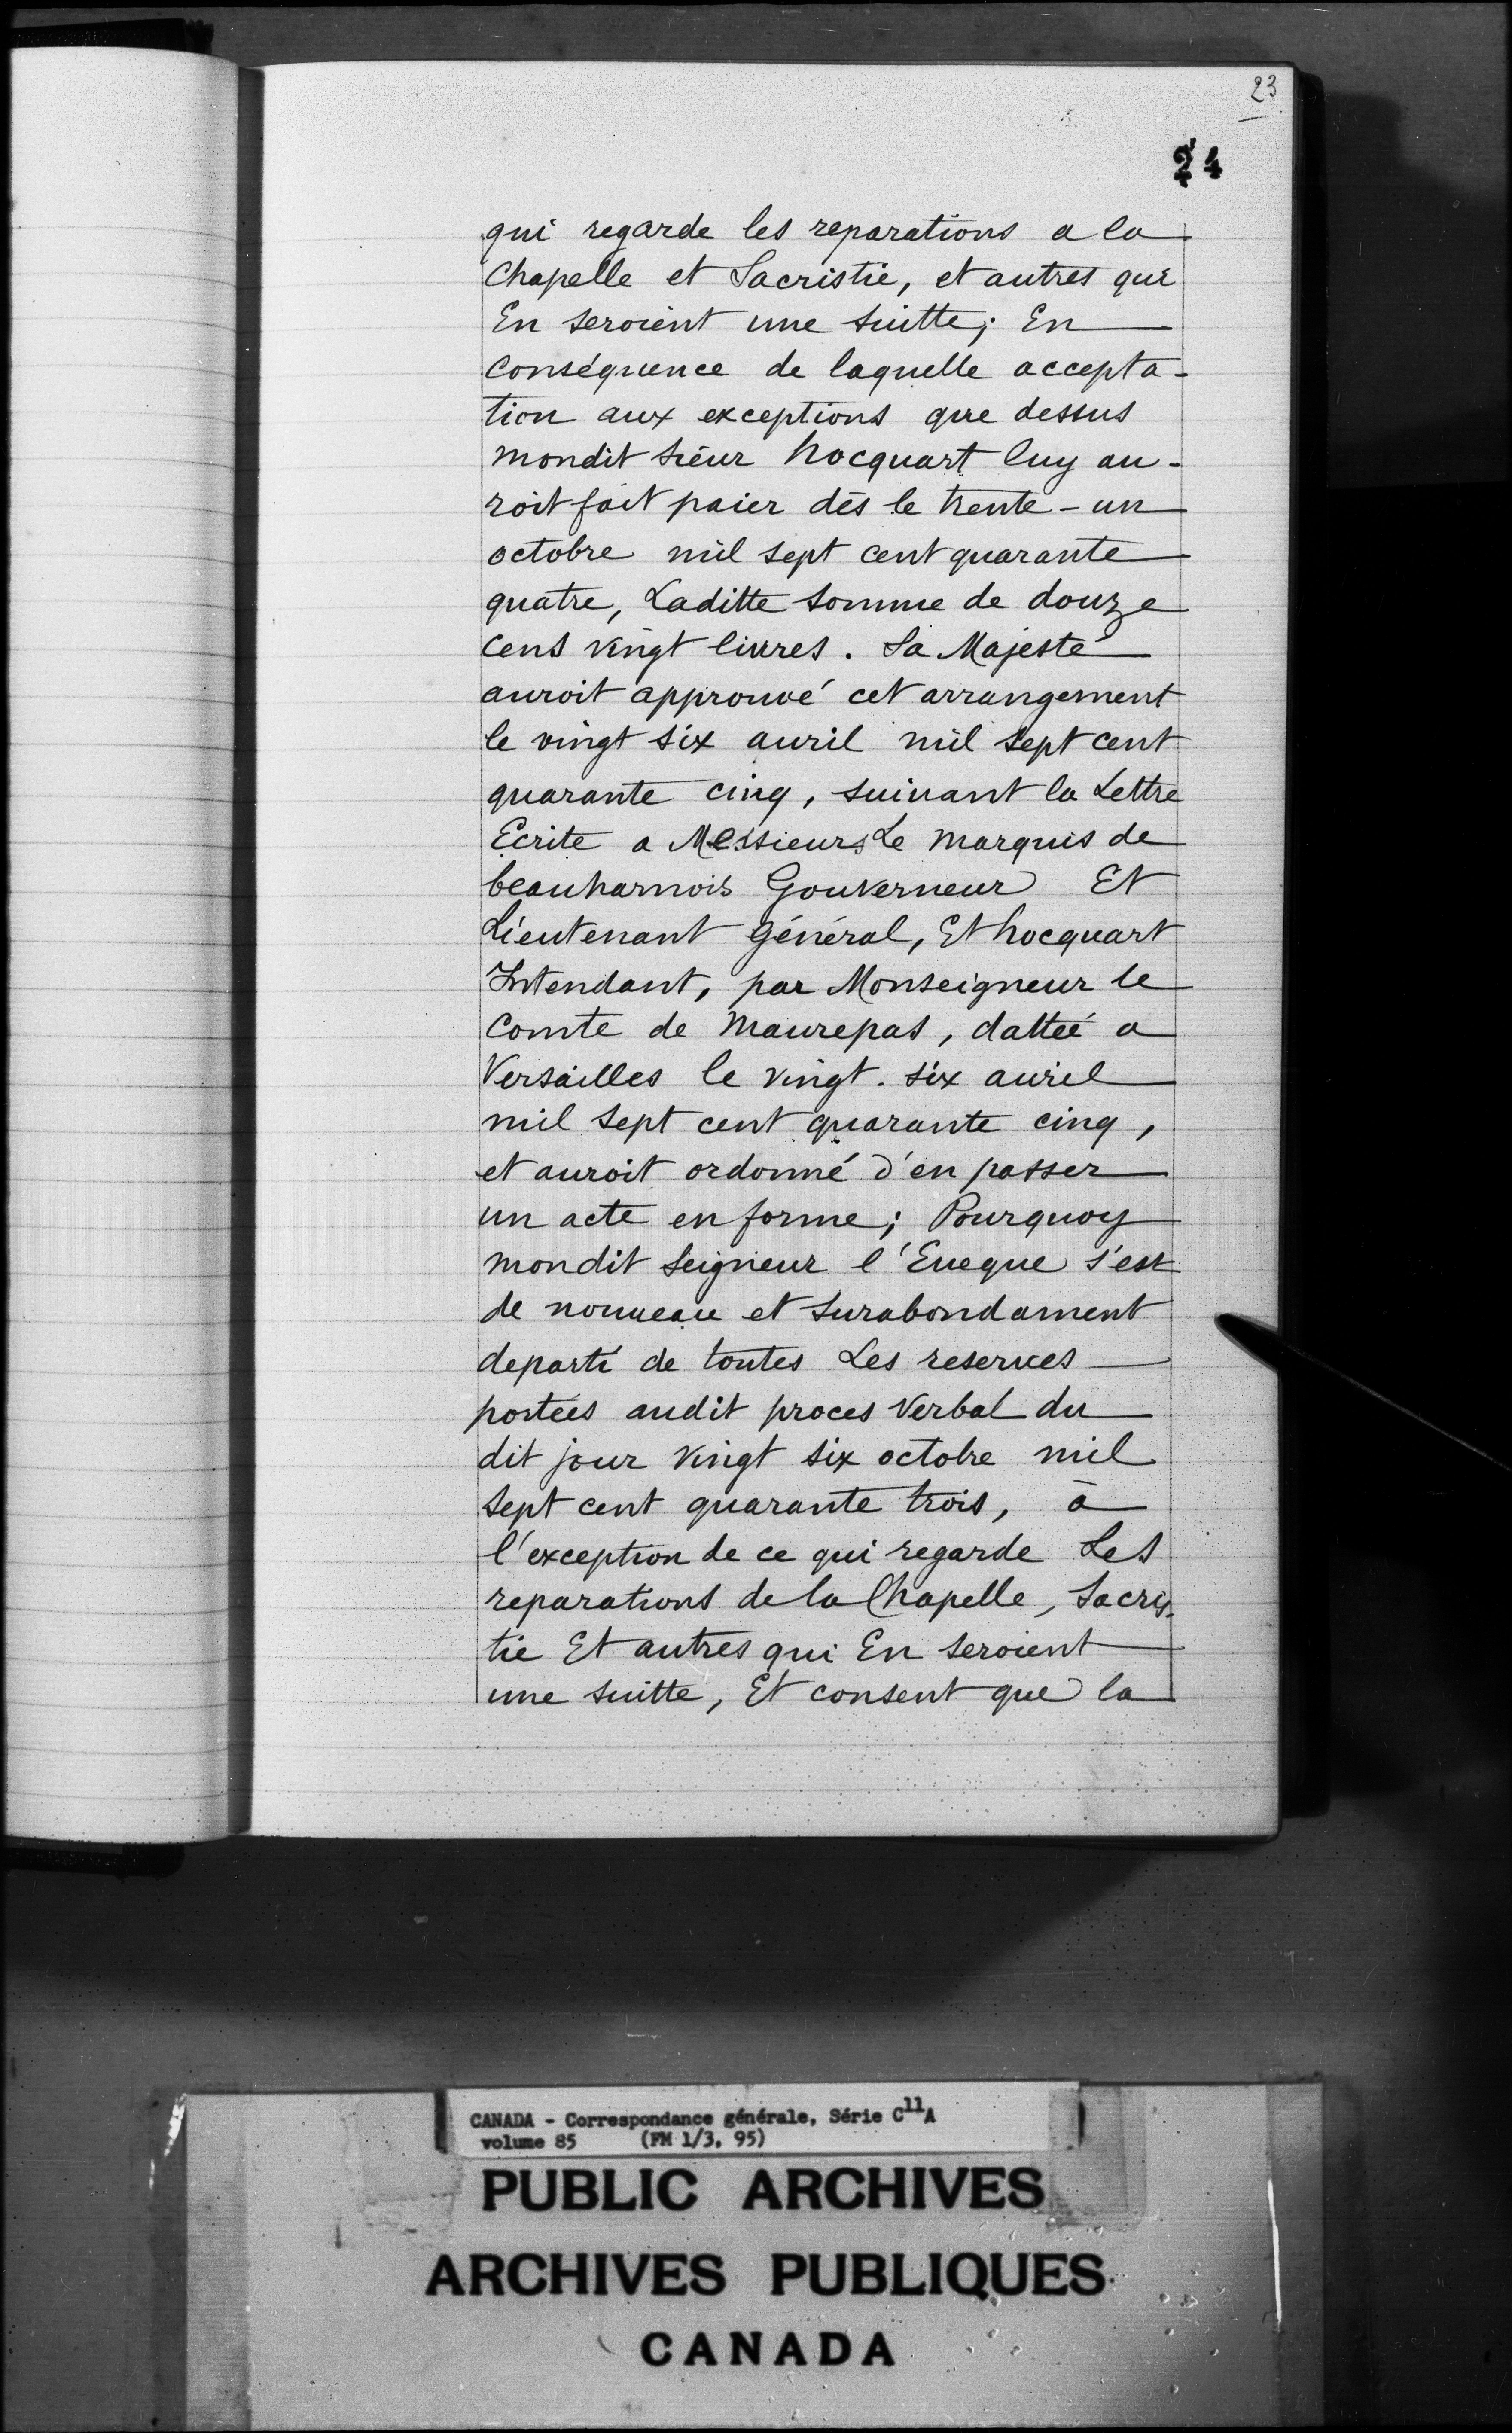 23
24
qui regarde les reparations a la
Chapelle et Sacristie, et autres qui
En seroient une suitte; En
conséquence de laquelle accepta-
tion aux exceptions que dessus
mondit sieur hocquart luy au-
roit fait paier dès le trente-un
octobre mil sept cent quarante
quatre, Laditte somme de douze
cens vingt livres. Sa Majesté
auroit approuvé cet arrangement
le vingt six auril mil sept cent
quarante cinq, suiuant la Lettre
Ecrite a Messieurs Le Marquis de
beauharnois Gouverneur Et
Lieutenant général, Et hocquart
Intendant, par Monseigneur le
Comte de Maurepas, dattée a
Versailles le vingt-six auril
mil sept cent quarante cinq,
et auroit ordonné d'en passer
un acte en forme; Pourquoy
mondit seigneur l'Eueque s'est
de nouueau et surabondament
departi de toutes Les reserues
portées audit proces verbal du
dit jour vingt six octobre mil
sept cent quarante trois, à
l'exception de ce qui regarde Les
reparations de la Chapelle, Sacris-
tie Et autres qui En seroient
une suitte, Et consent que la
CANADA - Correspondance générale, Série C11A
volume 85 (FM 1/3, 95)
PUBLIC ARCHIVES
ARCHIVES PUBLIQUES
CANADA